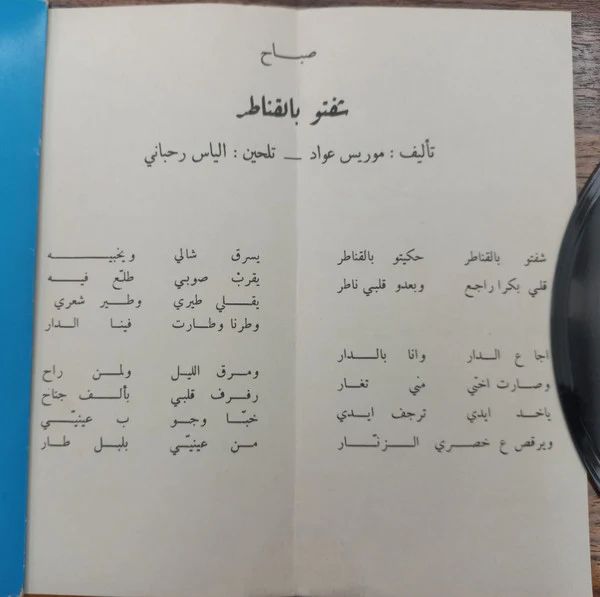 صباح
شفتو بالقناطر
تأليف : موريس عواد — تلحين : الياس رحباني
شفتو بالقناطر حكيتو بالقناطر
قلي بكرا راجع وبعدو قلبي ناطر
اجا ع الدار وانا بالدار
وصارت اختي مني تغار
ياخد ايدي ترجف ايدي
ويرقص ع خصري الزنّار
يسرق شالي ويخبيه
يقرب صوبي طلّع فيه
يقلي طيري وطير شعري
وطرنا وطارت فينا الدار
ومرق الليل ولمن راح
رفرف قلبي بألف جناح
خبّا وجو ب عينيّي
من عينيّي بلبل طار